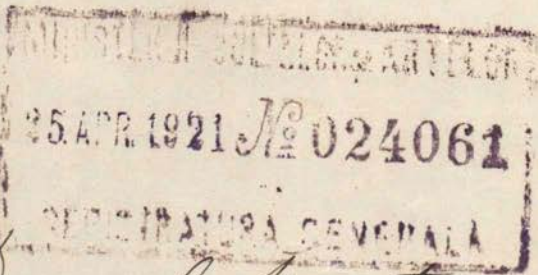 MINISTERUL CULTELOR ȘI ARTELOR
25 APR. 1921 № 024061
REGISTRATURA GENERALA